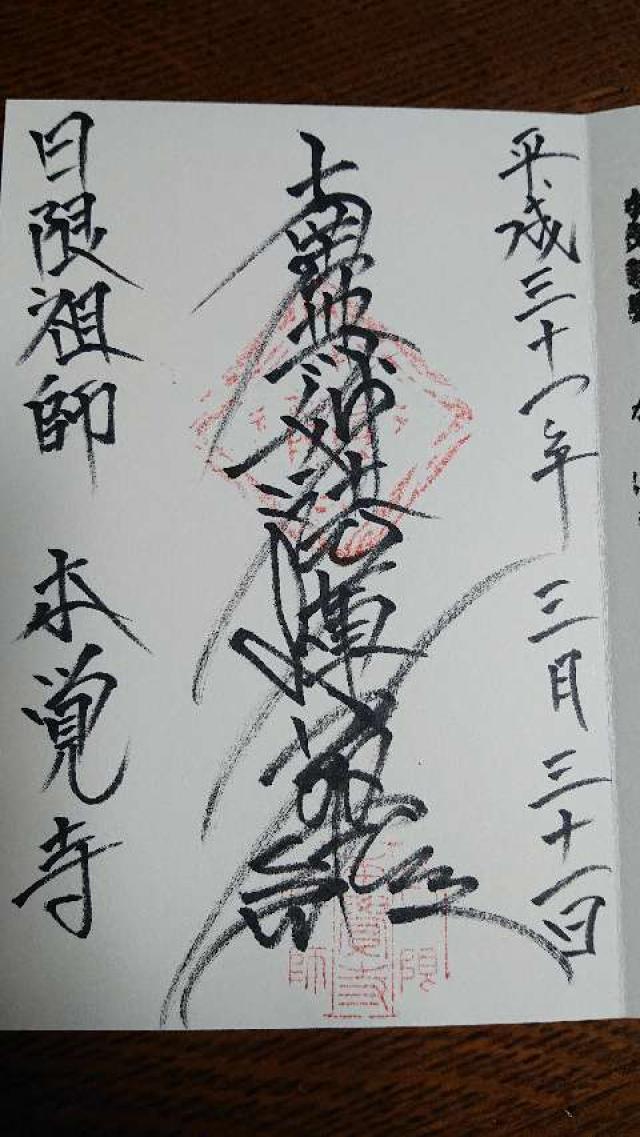 平成三十一年 三月三十一日
南無妙法蓮華経
日限祖師 本覚寺